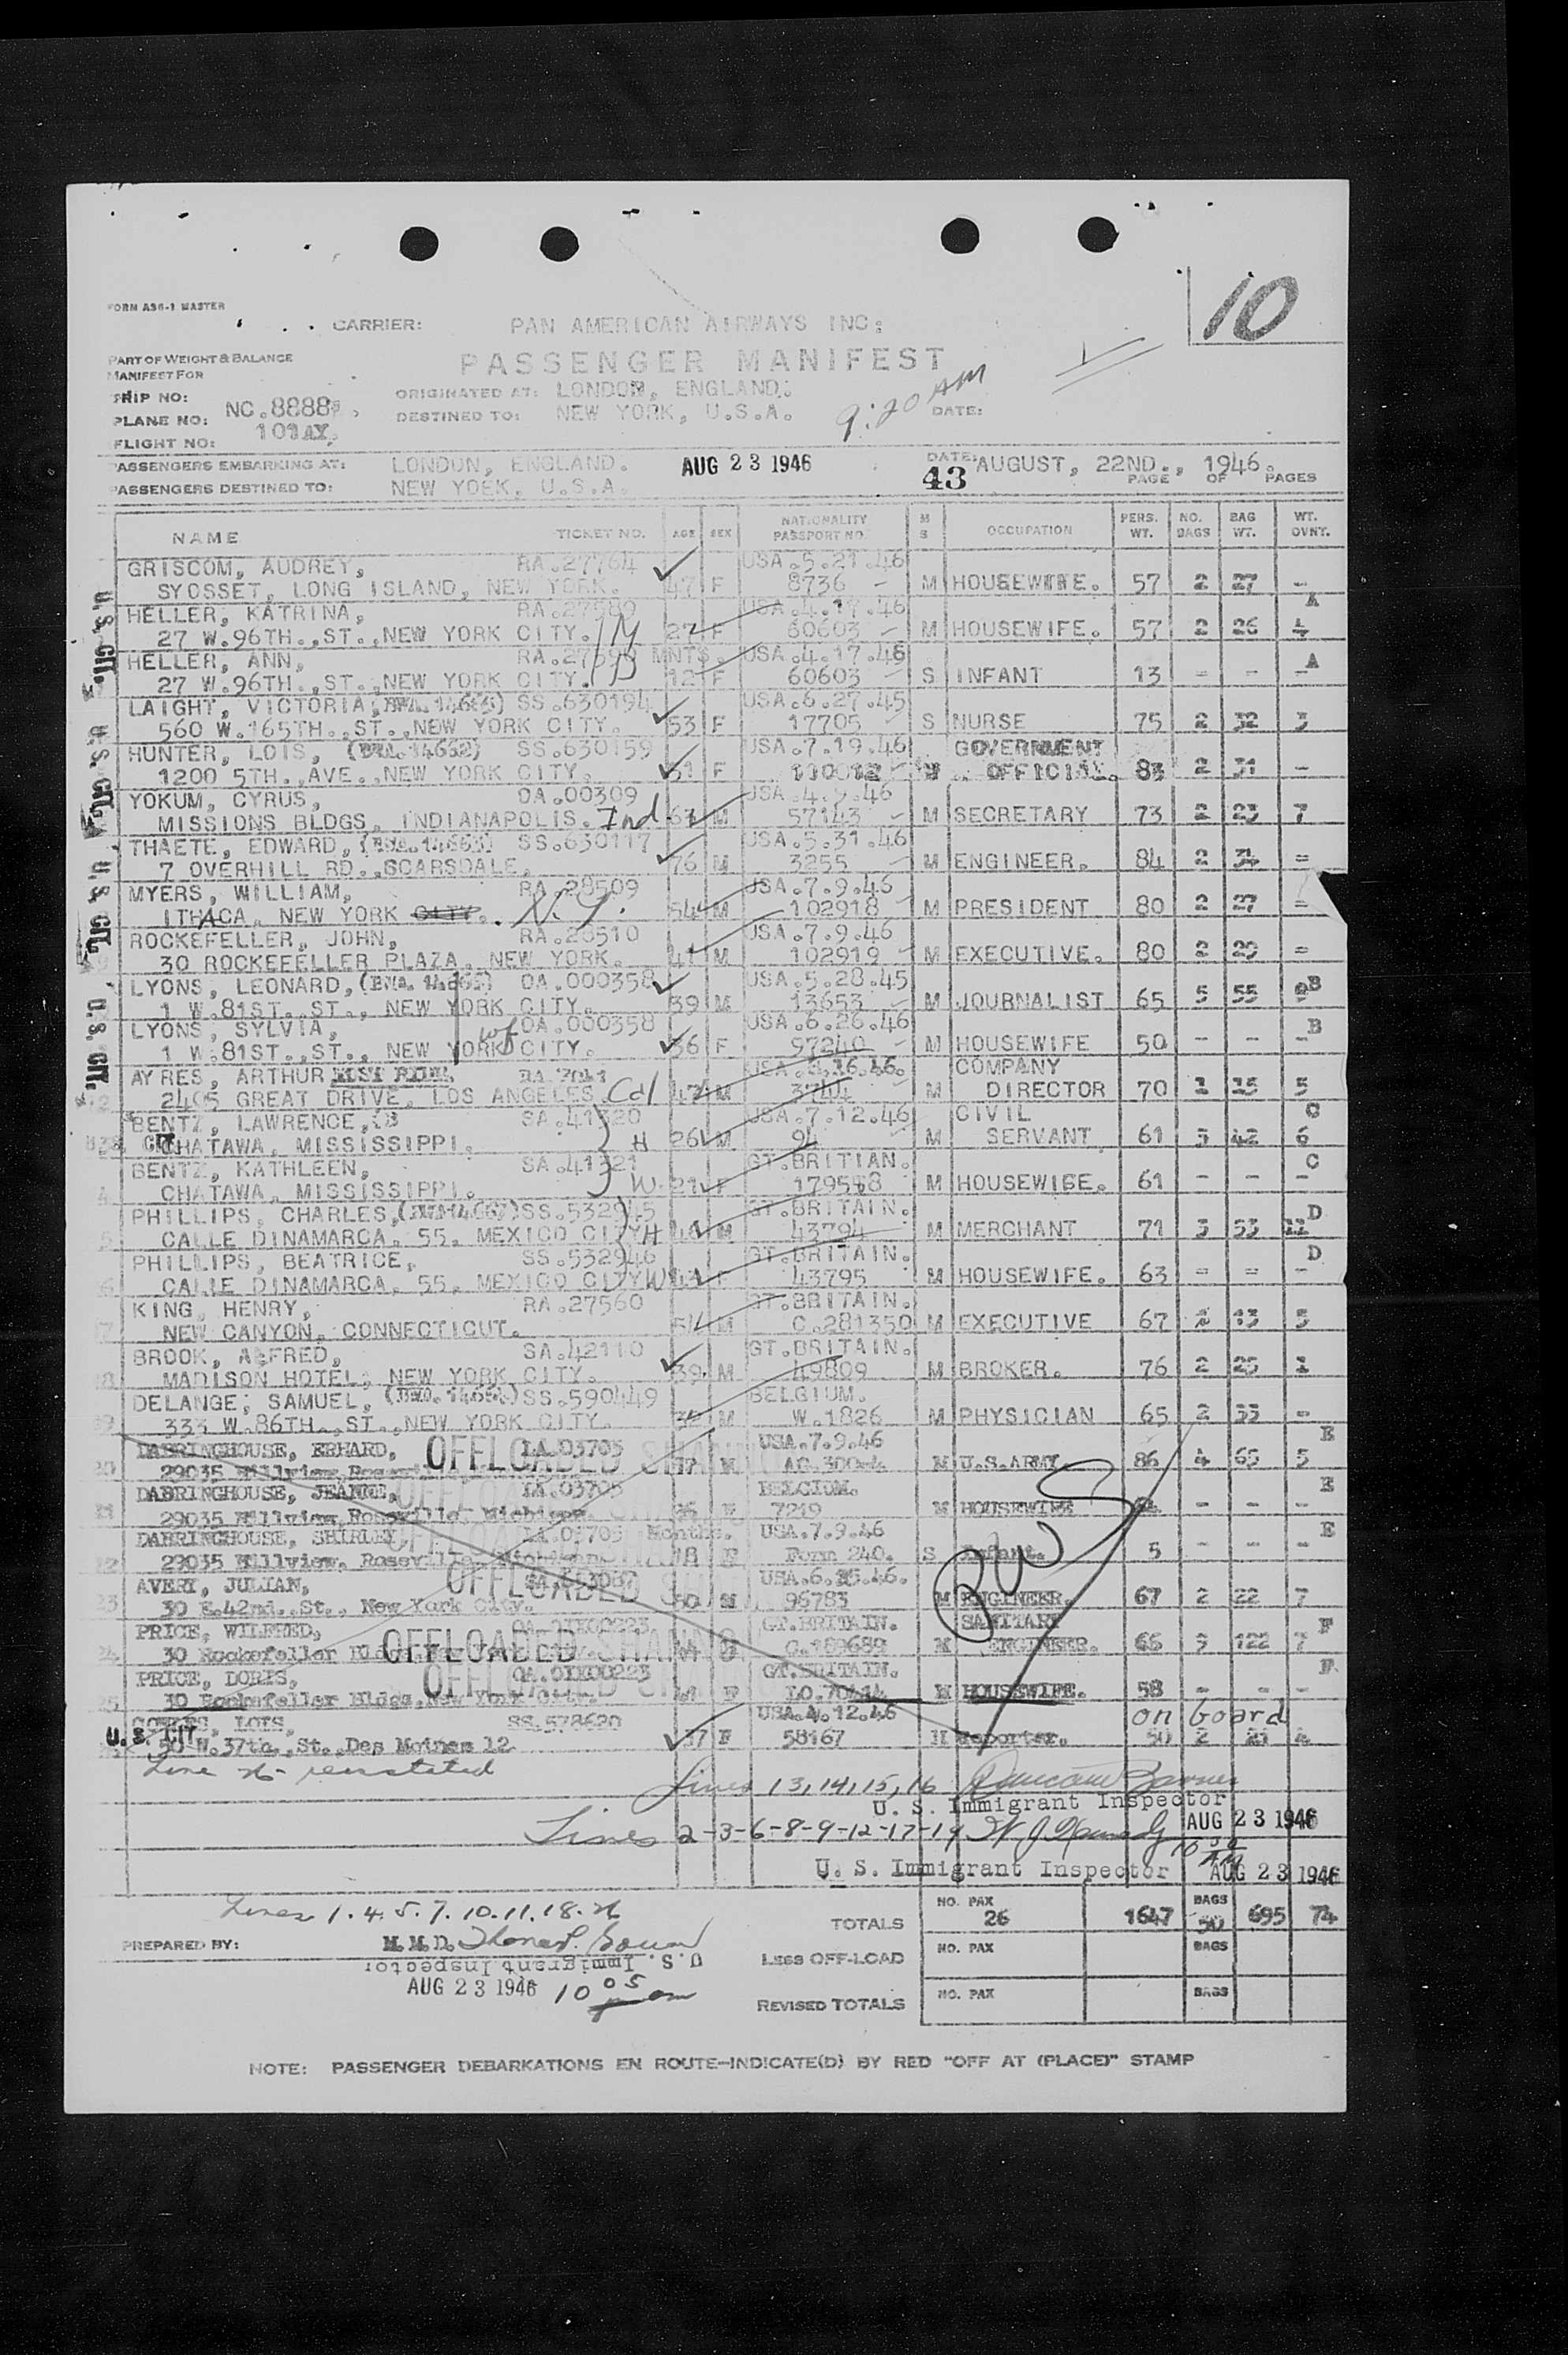 10
FORM A36-1 MASTER
CARRIER: PAN AMERICAN AIRWAYS INC:
PART OF WEIGHT & BALANCE
MANIFEST FOR
PASSENGER MANIFEST
TRIP NO:
ORIGINATED AT: LONDON, ENGLAND.
9:20 AM
PLANE NO: NC.8888
DESTINED TO: NEW YORK, U.S.A.
DATE:
FLIGHT NO: 101AY.
PASSENGERS EMBARKING AT: LONDON, ENGLAND. AUG 23 1946 DATE: AUGUST, 22ND., 1946.
PASSENGERS DESTINED TO: NEW YORK, U.S.A. 43 PAGE OF PAGES
NAME TICKET NO. AGE SEX NATIONALITY PASSPORT NO. M S OCCUPATION PERS. WT. NO. BAGS BAG WT. WT. OVNT.
GRISCOM, AUDREY, RA.27764 USA.5.21.46
SYOSSET, LONG ISLAND, NEW YORK. 47 F 8736 M HOUSEWIFE. 57 2 27 -
HELLER, KATRINA, RA.27589 USA.4.17.46 A
27 W.96TH.,ST.,NEW YORK CITY. M 27 F 60603 M HOUSEWIFE. 57 2 26 4
HELLER, ANN, MNTS. USA.4.17.46 A
27 W.96TH.,ST.,NEW YORK CITY. D 12 F 60603 S INFANT 13 - - -
LAIGHT, VICTORIA, SS.630194 USA.6.27.45
560 W.165TH.,ST.,NEW YORK CITY. 53 F 17705 S NURSE 75 2 32 3
HUNTER, LOIS, (BWA.14662) SS.630159 USA.7.19.46 GOVERNMENT
1200 5TH.,AVE.,NEW YORK CITY. F 110012 OFFICIAL. 83 2 31 -
YOKUM, CYRUS, OA.00309 USA.4.5.46
MISSIONS BLDGS, INDIANAPOLIS. Ind 67 M 57143 M SECRETARY 73 2 23 7
THAETE, EDWARD, SS.630117 USA.5.31.46
7 OVERHILL RD.,SCARSDALE. 76 M 3255 M ENGINEER. 84 2 34 -
MYERS, WILLIAM, RA.28509 USA.7.9.46
ITHACA, NEW YORK CITY. N.Y. 54 M 102918 M PRESIDENT 80 2 27 -
ROCKEFELLER, JOHN, RA.28510 USA.7.9.46
30 ROCKEFELLER PLAZA, NEW YORK. 41 M 102919 M EXECUTIVE. 80 2 29 -
LYONS, LEONARD, OA.000358 USA.5.28.45 B
1 W.81ST. ST., NEW YORK CITY. 39 M 13653 M JOURNALIST 65 5 55 9
LYONS, SYLVIA, wf OA.000358 USA.6.26.46 B
1 W.81ST.,ST., NEW YORK CITY. 36 F 97240 M HOUSEWIFE 50 - - -
AYRES, ARTHUR COMPANY
2405 GREAT DRIVE, LOS ANGELES. Cal 47 M 3744 M DIRECTOR 70 1 15 5
BENTZ, LAWRENCE, SA.41320 USA.7.12.46 CIVIL C
CHATAWA, MISSISSIPPI. H 26 M 94 M SERVANT 61 3 42 6
BENTZ, KATHLEEN, SA.41321 GT.BRITIAN. C
CHATAWA, MISSISSIPPI. W 21 F 179558 M HOUSEWIFE. 61 - - -
PHILLIPS, CHARLES, SS.532945 GT.BRITAIN. D
CALLE DINAMARCA, 55, MEXICO CITY H M 43794 M MERCHANT 71 3 53 12
PHILLIPS, BEATRICE, SS.532946 GT.BRITAIN. D
CALLE DINAMARCA, 55, MEXICO CITY W F 43795 M HOUSEWIFE. 63 - - -
KING, HENRY, RA.27560 GT.BRITAIN.
NEW CANYON, CONNECTICUT. 54 M C.281350 M EXECUTIVE 67 2 13 5
BROOK, ALFRED, SA.42110 GT.BRITAIN.
MADISON HOTEL, NEW YORK CITY. 39 M 49809 M BROKER. 76 2 25 1
DELANGE, SAMUEL, SS.590449 BELGIUM.
333 W.86TH.,ST.,NEW YORK CITY. M W.1826 M PHYSICIAN 65 2 33 -
DABRINGHOUSE, ERHARD, LA.03705 USA.7.9.46 E
29035 Hillview, OFFLOADED M AG.30044 M U.S.ARMY. 86 4 65 5
DABRINGHOUSE, JEANNE, LA.03705 BELGIUM. E
29035 Hillview, Roseville, Michigan. F 7219 M HOUSEWIFE - - -
DABRINGHOUSE, SHIRLEY LA.03705 Months. USA.7.9.46 E
29035 Hillview, Roseville, Michigan. 8 F Form 240. S Infant. 5 - - -
AVERY, JULIAN, OFFLOADED USA.6.25.46.
30 E.42nd.,St., New York City. M 96783 M ENGINEER. 67 2 22 7
PRICE, WILFRED, GT.BRITAIN. SANITARY F
30 Rockefeller OFFLOADED C.189689 M ENGINEER. 66 3 122 7
PRICE, DORIS, GT.BRITAIN. F
30 Rockefeller Bldgs, New York City. F LO.70414 M HOUSEWIFE. 58 - - -
COWLES, LOIS, SS.578620 USA.4.12.46 on board
U.S. CIT 50 W.37th.,St.,Des Moines 12 37 F 58167 M Reporter. 50 2 21 4
Line 26 - reinstated
Lines 13,14,15,16
U. S. Immigrant Inspector
Lines 2-3-6-8-9-12-17-19 AUG 23 1946
U. S. Immigrant Inspector AUG 23 1946
Lines 1.4.5.7.10.11.18.26
TOTALS NO. PAX 26 1647 BAGS 50 695 74
PREPARED BY: M.M.D.
U.S. Immigrant Inspector
LESS OFF-LOAD NO. PAX BAGS
AUG 23 1946 10 05 am
REVISED TOTALS NO. PAX BAGS
NOTE: PASSENGER DEBARKATIONS EN ROUTE-INDICATE(D) BY RED "OFF AT (PLACE)" STAMP